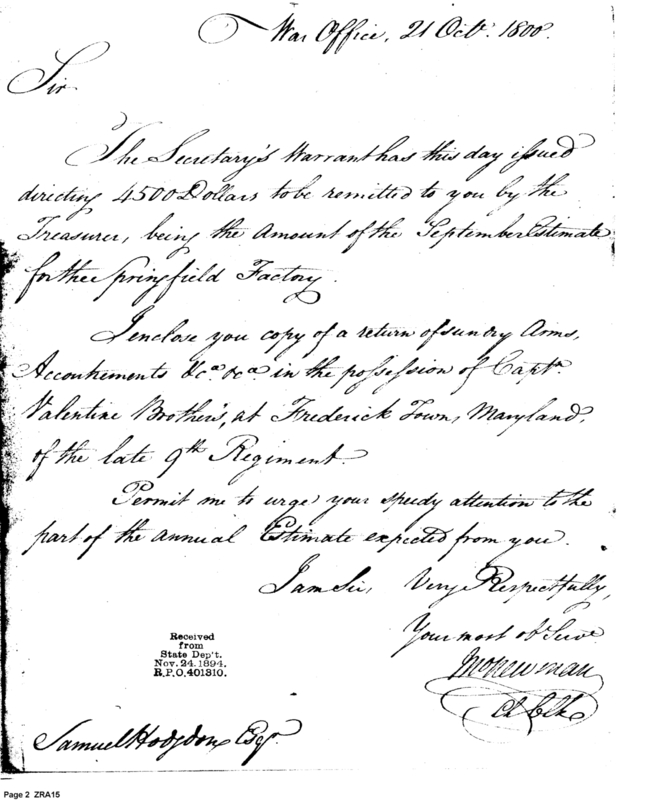 War Office, 21 Octr. 1800.
Sir
The Secretary's Warrant has this day issued
directing 4500 Dollars to be remitted to you by the
Treasurer, being the Amount of the September Estimate
for the Springfield Factory.
I enclose you copy of a return of sundry Arms,
Accoutrements &ca. &ca. in the possession of Captn.
Valentine Brother's, at Frederick Town, Maryland,
of the late 9th Regiment.
Permit me to urge your speedy attention to the
part of the annual Estimate expected from you.
I am Sir, Very Respectfully,
Your most ob Serve
Jno Newman
Ch Clk
Received
from
State Dep't.
Nov. 24. 1894.
R.P.O. 401310.
Samuel Hodgdon Esqr.
Page 2 ZRA15